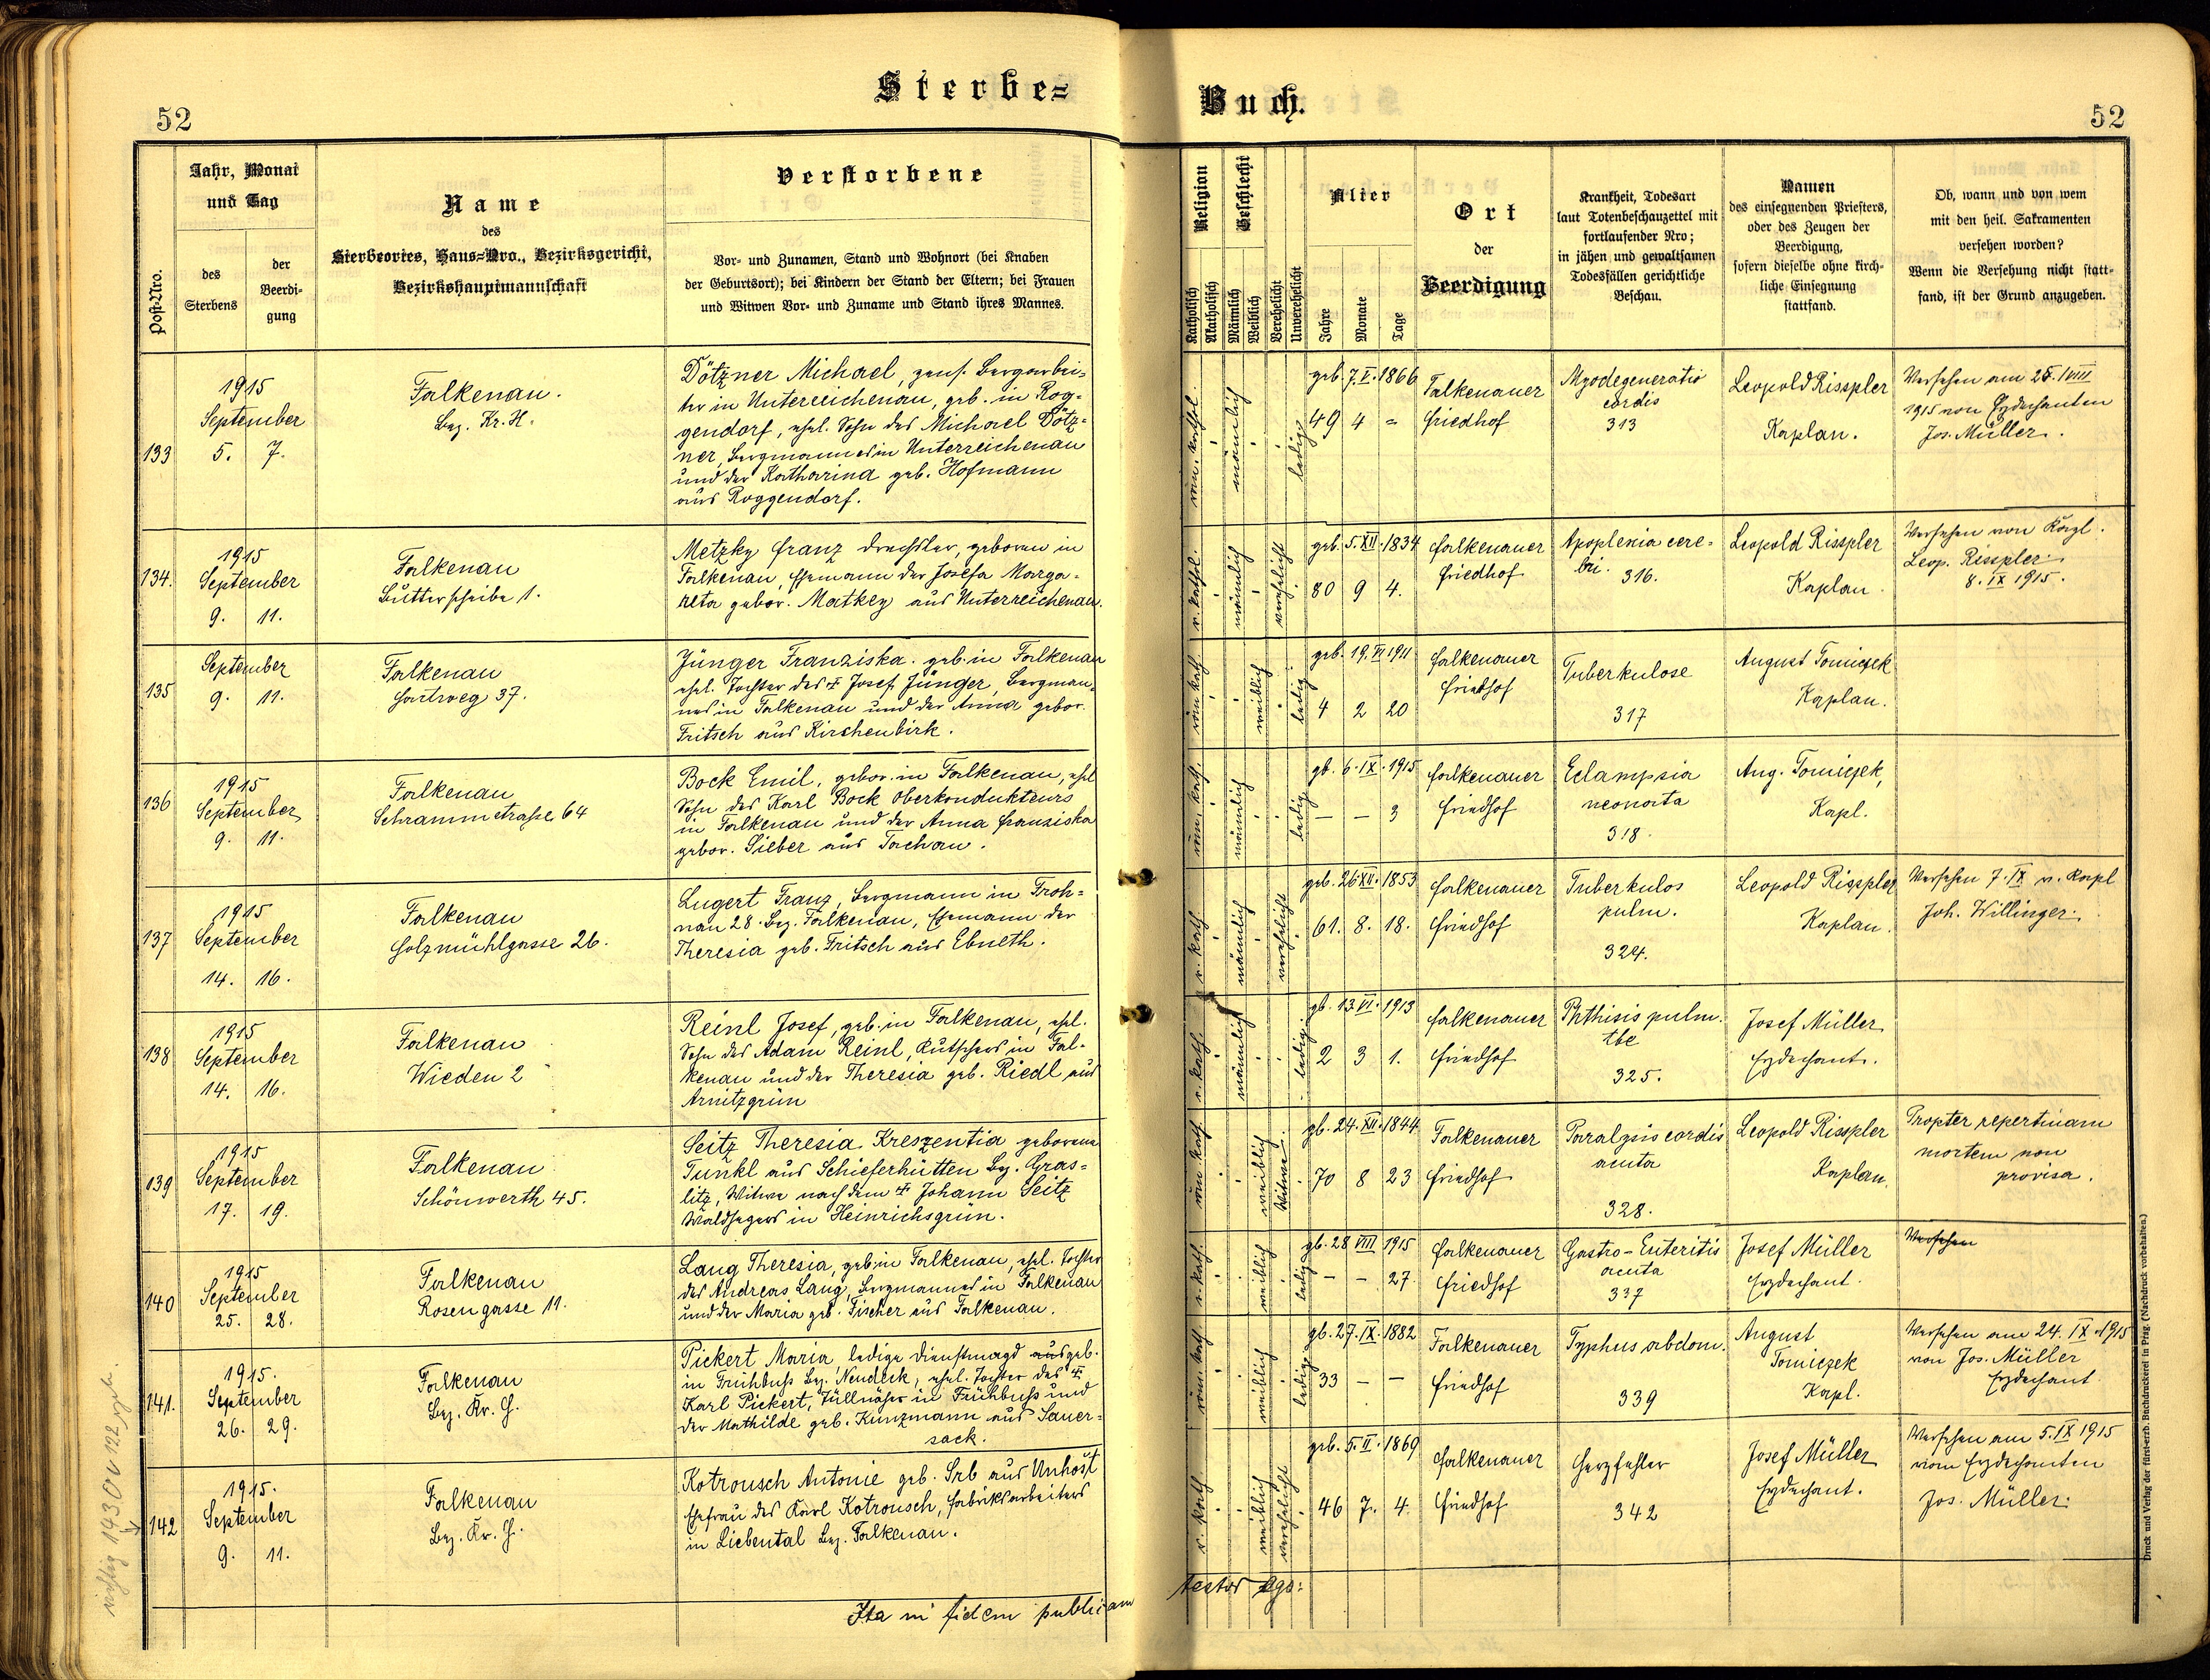 Sterbe=
Buch.
52
52
Post-Nro.
Jahr, Monat
und Tag
des
Sterbens
der
Beerdi-
gung
Name
des
Sterbeortes, Haus=Nro., Bezirksgericht,
Bezirkshauptmannschaft
Verstorbene
Vor- und Zunamen, Stand und Wohnort (bei Knaben
der Geburtsort); bei Kindern der Stand der Eltern; bei Frauen
und Witwen Vor- und Zuname und Stand ihres Mannes.
Religion
Katholisch
Akatholisch
Geschlecht
Männlich
Weiblich
Verehelicht
Unverehelicht
Alter
Jahre
Monate
Tage
Ort
der
Beerdigung
Krankheit, Todesart
laut Totenbeschauzettel mit
fortlaufender Nro;
in jähen und gewaltsamen
Todesfällen gerichtliche
Beschau.
Namen
des einsegnenden Priesters,
oder des Zeugen der
Beerdigung,
sofern dieselbe ohne kirch-
liche Einsegnung
stattfand.
Ob, wann und von wem
mit den heil. Sakramenten
versehen worden?
Wenn die Versehung nicht statt-
fand, ist der Grund anzugeben.
133
1915
September
5. 7.
Falkenau.
Bez. Kr. H.
Dötzner Michael, pens. Bergarbei-
ter in Unterreichenau, geb. in Rog-
gendorf, ehel. Sohn des Michael Dötz-
ner, Bergmannes in Unterreichenau
und der Katharina geb. Hofmann
aus Roggendorf.
röm. kathol.
männlich
ledig
geb. 7. V. 1866
49 4 =
Falkenauer
Friedhof
Myodegeneratio
cordis
313
Leopold Risspler
Kaplan.
Versehen am 25. VIII
1915 von Erzdechanten
Jos. Müller.
134.
1915
September
9. 11.
Falkenau
Butterscheibe 1.
Metzky Franz Drechsler, geboren in
Falkenau, Ehemann der Josefa Marga-
reta gebor. Matkey aus Unterreichenau.
r. kathol.
männlich
verehelicht
geb. 5. XII. 1834
80 9 4.
Falkenauer
Friedhof
Apoplexia cere-
bri.
316.
Leopold Risspler
Kaplan
Versehen von Kapl.
Leop. Risspler
8. IX 1915.
135
September
9. 11.
Falkenau
Hartweg 37.
Jünger Franziska. geb. in Falkenau
ehel. Tochter des † Josef Jünger, Bergman-
nes in Falkenau und der Anna gebor.
Fritsch aus Kirchenbirk.
röm. kath.
weiblich
ledig
geb. 19. VI 1911
4 2 20
Falkenauer
Friedhof
Tuberkulose
317
August Tomiczek
Kaplan.
136
1915
September
9. 11.
Falkenau
Schrammstraße 64
Bock Emil, gebor. in Falkenau, ehel
Sohn des Karl Bock Oberkondukteurs
in Falkenau und der Anna Franziska
gebor. Sieber aus Tachau.
röm. kath.
männlich
ledig
gb. 6. IX. 1915
— — 3
Falkenauer
Friedhof
Eclampsia
neonata
318.
Aug. Tomiczek,
Kapl.
137
1915
September
14. 16.
Falkenau
Holzmühlgasse 26.
Lugert Franz, Bergmann in Froh-
nau 28. Bez. Falkenau, Ehemann der
Theresia geb. Fritsch aus Ebmeth.
r. kath
männlich
verehelicht
geb. 26. XII. 1853
61. 8. 18.
Falkenauer
Friedhof
Tuberkulos
pulm.
324.
Leopold Risspler
Kaplan.
Versehen 7. IX v. Kapl
Joh. Willinger.
138
1915
September
14. 16.
Falkenau
Wieden 2
Reinl Josef, geb. in Falkenau, ehel.
Sohn des Adam Reinl, Kutschers in Fal-
kenau und der Theresia geb. Riedl aus
Arnitzgrün
r. kath.
männlich
ledig.
gb. 13. VI. 1913
2 3 1.
Falkenauer
Friedhof
Phthisis pulm.
tbc
325.
Josef Müller
Erzdechant.
139
1915
September
17. 19.
Falkenau
Schönwerth 45.
Seitz Theresia Kreszentia geborene
Tunkl aus Schieferhütten Bz. Gras-
litz, Witwe nach dem † Johann Seitz
Waldhegers in Heinrichsgrün.
röm. kath.
weiblich
Witwe.
gb. 24. XII. 1844
70 8 23
Falkenauer
Friedhof
Paralysis cordis
acuta
328.
Leopold Risspler
Kaplan.
Propter repentinam
mortem non
provisa.
140
1915
September
25. 28.
Falkenau
Rosengasse 11.
Lang Theresia, geb. in Falkenau, ehel. Tochter
des Andreas Lang, Bergmannes in Falkenau
und der Maria geb. Fischer aus Falkenau.
r. kath.
weiblich
ledig
gb. 28 VIII 1915
— — 27.
Falkenauer
Friedhof
Gastro-Enteritis
acuta
337
Josef Müller
Erzdechant.
Versehen
141.
1915.
September
26. 29.
Falkenau
Bez. Kr. H.
Pickert Maria, ledige Dienstmagd aus geb.
in Frühbuß Bez. Neudeck, ehel. Tochter des †
Karl Pickert, Tüllnäher in Frühbuß und
der Mathilde geb. Kunzmann aus Sauer-
sack.
röm. kath.
weiblich
ledig
gb. 27. IX. 1882
33 — —
Falkenauer
Friedhof
Typhus abdom.
339
August
Tomiczek
Kapl.
Versehen am 24. IX. 1915
von Jos. Müller
Erzdechant
142
1915.
September
9. 11.
Falkenau
Bez. Kr. H.
Kotrousch Antonie geb. Srb aus Unhošt
Ehefrau des Karl Kotrousch, Fabriksarbeiters
in Liebental Bez. Falkenau.
r. kath
weiblich
verehelicht
geb. 5. II. 1869
46 7. 4.
Falkenauer
Friedhof
Herzfehler
342
Josef Müller
Erzdechant.
Versehen am 5. IX 1915
vom Erzdechanten
Jos. Müller.
Ita in fidem publicam
testor ego:
richtig 143 or 122
Druck und Verlag der fürst-erzb. Buchdruckerei in Prag. (Nachdruck vorbehalten.)